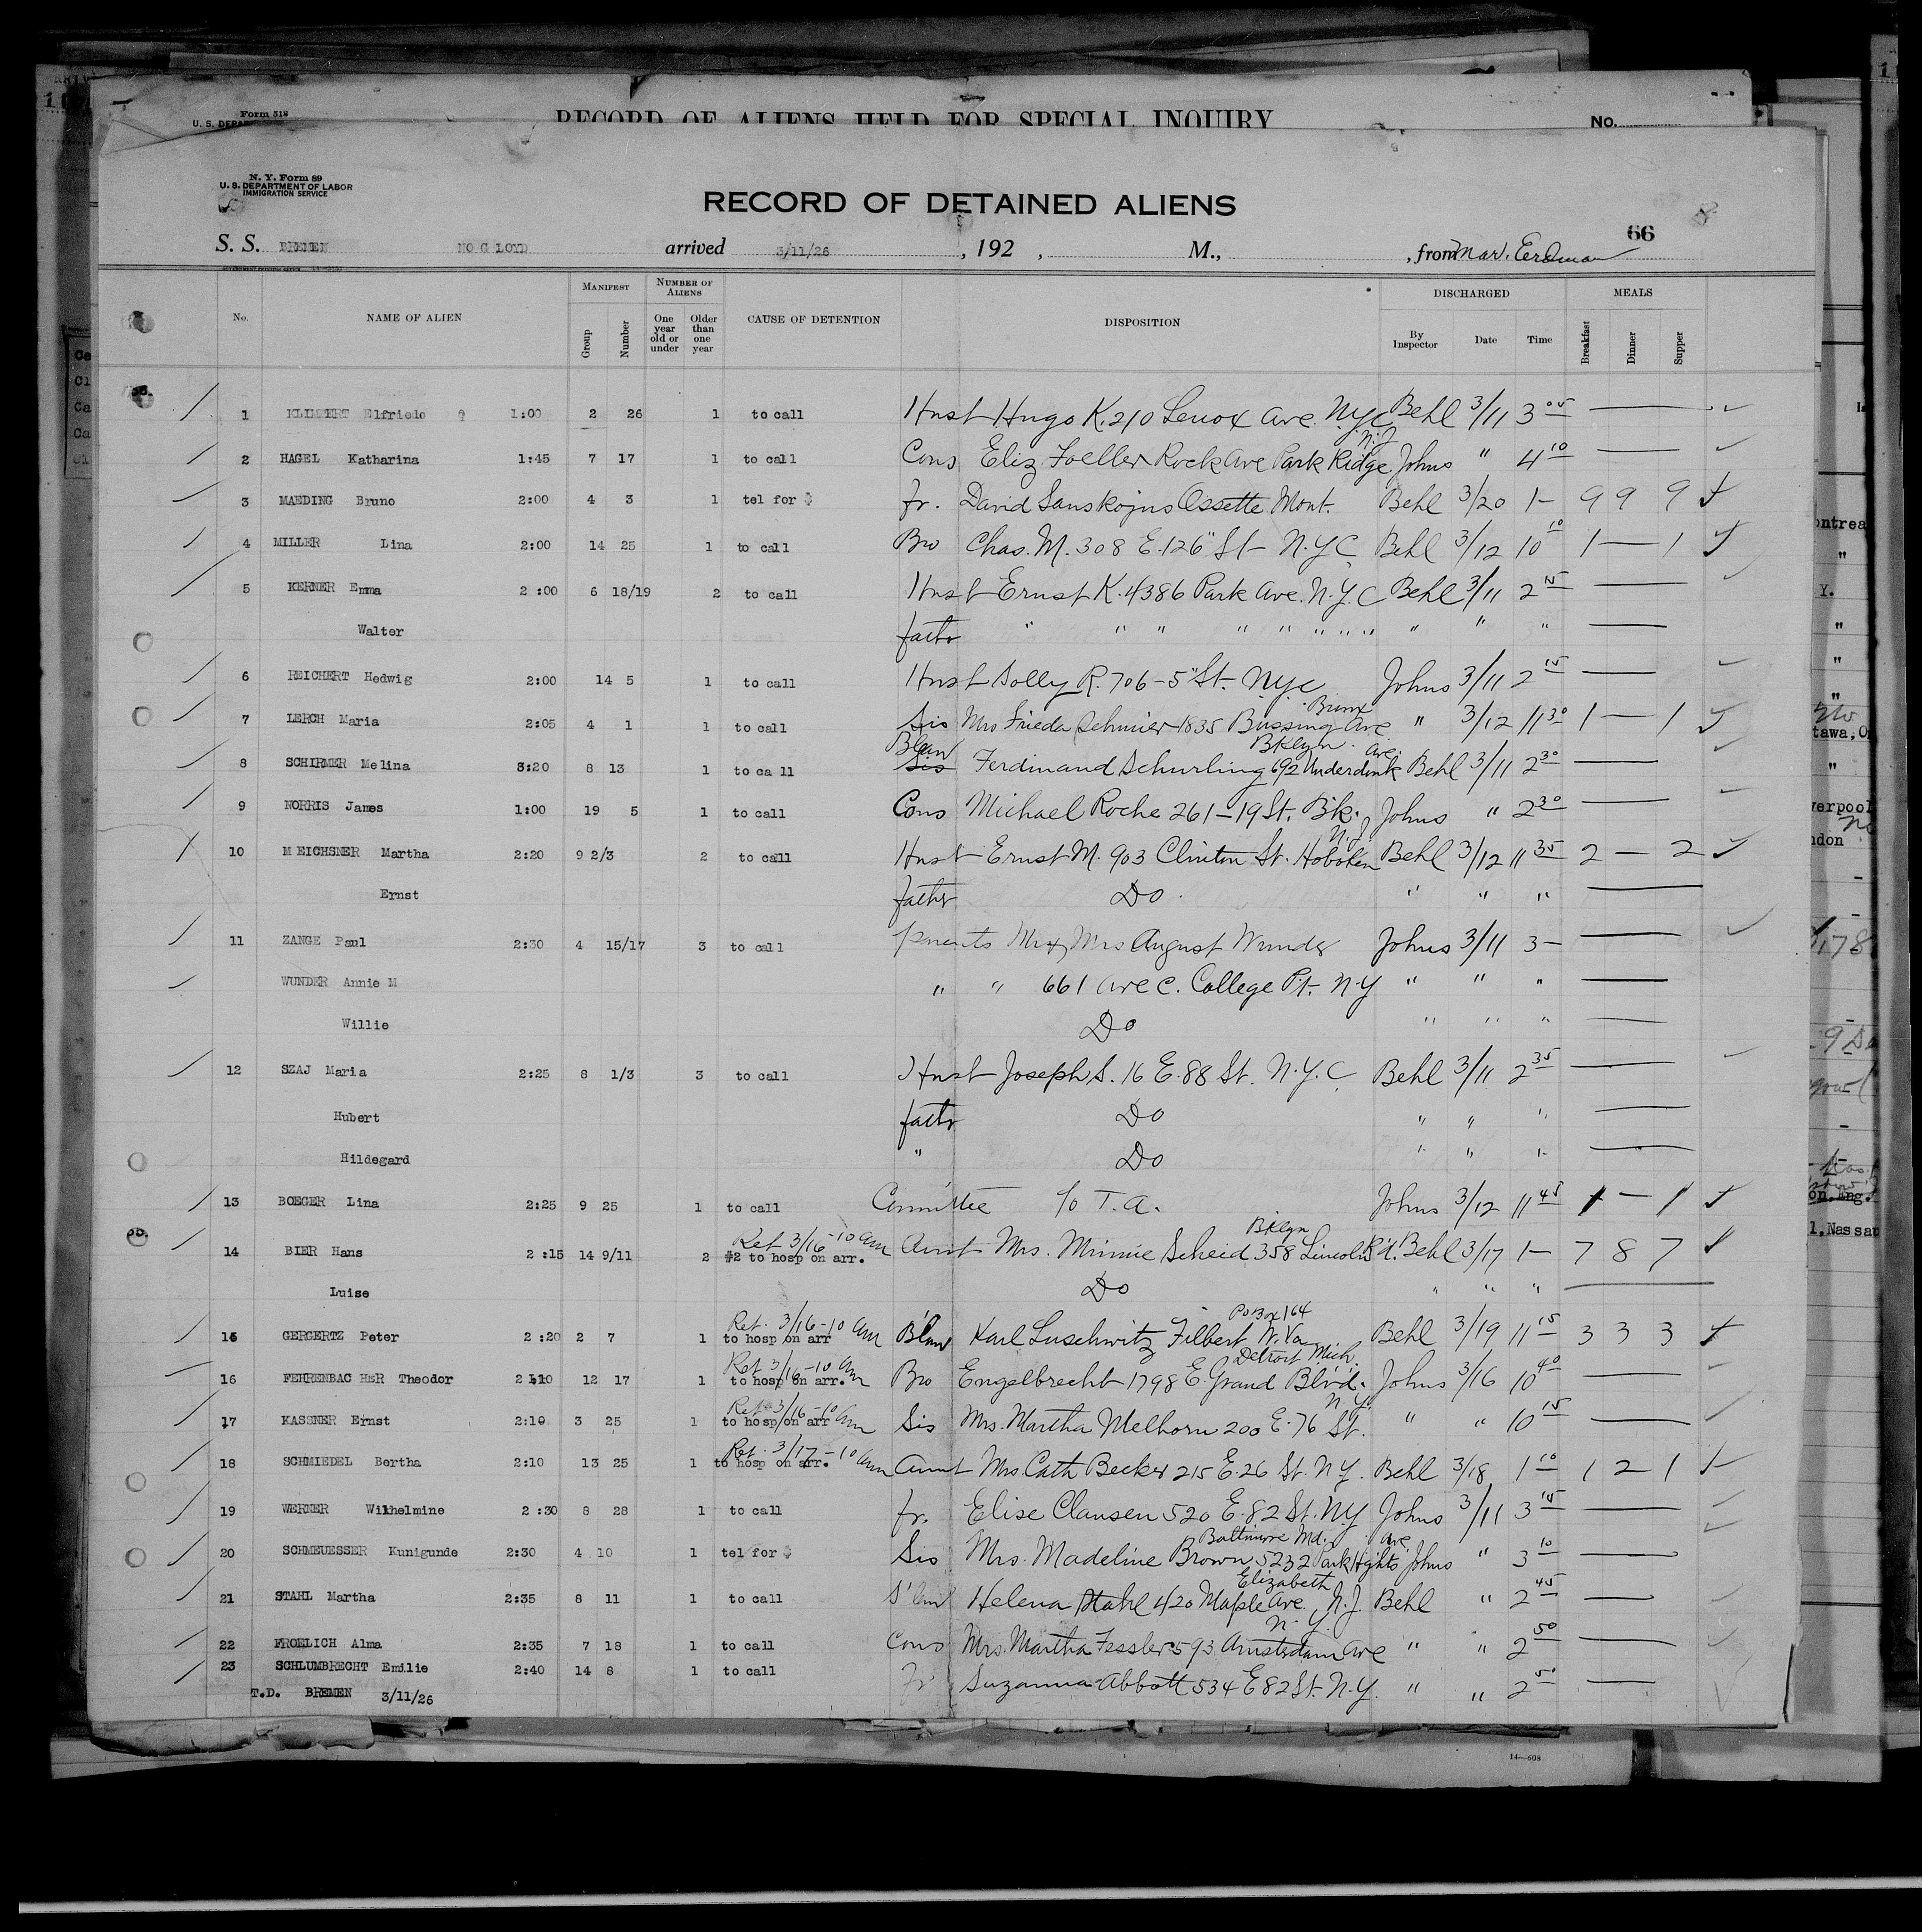 Form 518
U. S. DEPAR
RECORD OF ALIENS HELD FOR SPECIAL INQUIRY
No.
N. Y. Form 89
U. S. DEPARTMENT OF LABOR
IMMIGRATION SERVICE
RECORD OF DETAINED ALIENS
66
S. S. BREMEN NO G LOYD arrived 3/11/26, 192 , M., , from Mar. Erdman
No. NAME OF ALIEN MANIFEST Group Number NUMBER OF ALIENS One year old or under Older than one year CAUSE OF DETENTION DISPOSITION DISCHARGED By Inspector Date Time MEALS Breakfast Dinner Supper
1 KLIMPERT Elfriede 1:00 2 26 1 to call Husb Hugo K. 210 Lenox Ave. N.Y.C Behl 3/11 3 05 —
2 HAGEL Katharina 1:45 7 17 1 to call Cons Eliz Foeller Rock Ave Park Ridge N.J. Johns " 4 10 —
3 MAEDING Bruno 2:00 4 3 1 tel for $ fr. David Ossette Mont. Behl 3/20 1- 9 9 9
4 MILLER Lina 2:00 14 25 1 to call Bro Chas. M. 308 E. 126" St- N.Y.C Behl 3/12 10 10 1 — 1
5 KERNER Emma 2 :00 6 18/19 2 to call Husb Ernst K. 4386 Park Ave. N.Y.C Behl 3/11 2 15 —
Walter fathr " " " " " " " " " " " —
6 REICHERT Hedwig 2:00 14 5 1 to call Husb Solly R. 706-5" St. N.Y.C Johns 3/11 2 15 —
7 LERCH Maria 2:05 4 1 1 to call Sis Mrs Frieda Schmier 1835 Bussing Ave Bronx " 3/12 11 30 1 — 1
8 SCHIRMER Melina 3:20 8 13 1 to ca ll Sis Blaw Ferdinand Schurling 692 Underdonk Ave. Bklyn. Behl 3/11 2 30 —
9 NORRIS James 1:00 19 5 1 to call Cons Michael Roche 261-19 St. Bk. Johns " 2 30 —
10 MEICHSNER Martha 2:20 9 2/3 2 to call Husb Ernst M. 903 Clinton St. Hoboken N.J. Behl 3/12 11 35 2 — 2
Ernst fathr Do " " " —
11 ZANGE Paul 2:30 4 15/17 3 to call parents Mr & Mrs August Wunder Johns 3/11 3- —
WUNDER Annie M " " 661 Ave C. College Pt. N.Y " " " —
Willie Do " " " —
12 SZAJ Maria 2:25 8 1/3 3 to call Husb Joseph S. 16 E. 88 St. N.Y.C Behl 3/11 2 35 —
Hubert fathr Do " " " —
Hildegard " Do " " " —
13 BOEGER Lina 2:25 9 25 1 to call Committee c/o T. A. Johns 3/12 11 45 1 — 1
14 BIER Hans 2 :15 14 9/11 2 Ret 3/16-10 am #2 to hosp on arr. Aunt Mrs. Minnie Scheid 358 Lincoln Rd. Bklyn Behl 3/17 1- 7 8 7
Luise Do " " " —
15 GERGERTZ Peter 2 :20 2 7 1 Ret. 3/16-10 am to hosp on arr B'law Karl Luschwitz Filbert W. Va PO Box 164 Behl 3/19 11 15 3 3 3
16 FEHRENBAC HER Theodor 2:10 12 17 1 Ret 3/16-10 am to hosp on arr. Bro Engelbrecht 1798 E. Grand Blvd. Detroit Mich. Johns 3/16 10 40 —
17 KASSNER Ernst 2:10 3 25 1 Ret 3/16-10 am to hosp on arr Sis Mrs. Martha Melhorn 200 E. 76 St. N.Y. " " 10 15 —
18 SCHMIEDEL Bertha 2:10 13 25 1 Ret. 3/17-10 am to hosp on arr. Aunt Mrs. Cath Becker 215 E. 26 St. N.Y. Behl 3/18 1 10 1 2 1
19 WERNER Wilhelmine 2 :30 8 28 1 to call fr. Elise Clausen 520 E. 82 St. N.Y Johns 3/11 3 15 —
20 SCHMEUESSER Kunigunde 2:30 4 10 1 tel for $ Sis Mrs. Madeline Brown 5232 Park Hghts Ave. Baltimore Md. Johns " 3 10 —
21 STAHL Martha 2:35 8 11 1 to call S'law Helena Stahl 420 Maple Ave. Elizabeth N.J. Behl " 2 45 —
22 FROELICH Alma 2:35 7 18 1 to call Cons Mrs. Martha Fessler 593 Amsterdam Ave N.Y. " " 2 50 —
23 SCHLUMBRECHT Emilie 2:40 14 8 1 to call Fr Suzanna Abbott 534 E 82 St. N.Y. " " 2 50 —
T.D. BREMEN 3/11/26
14—608